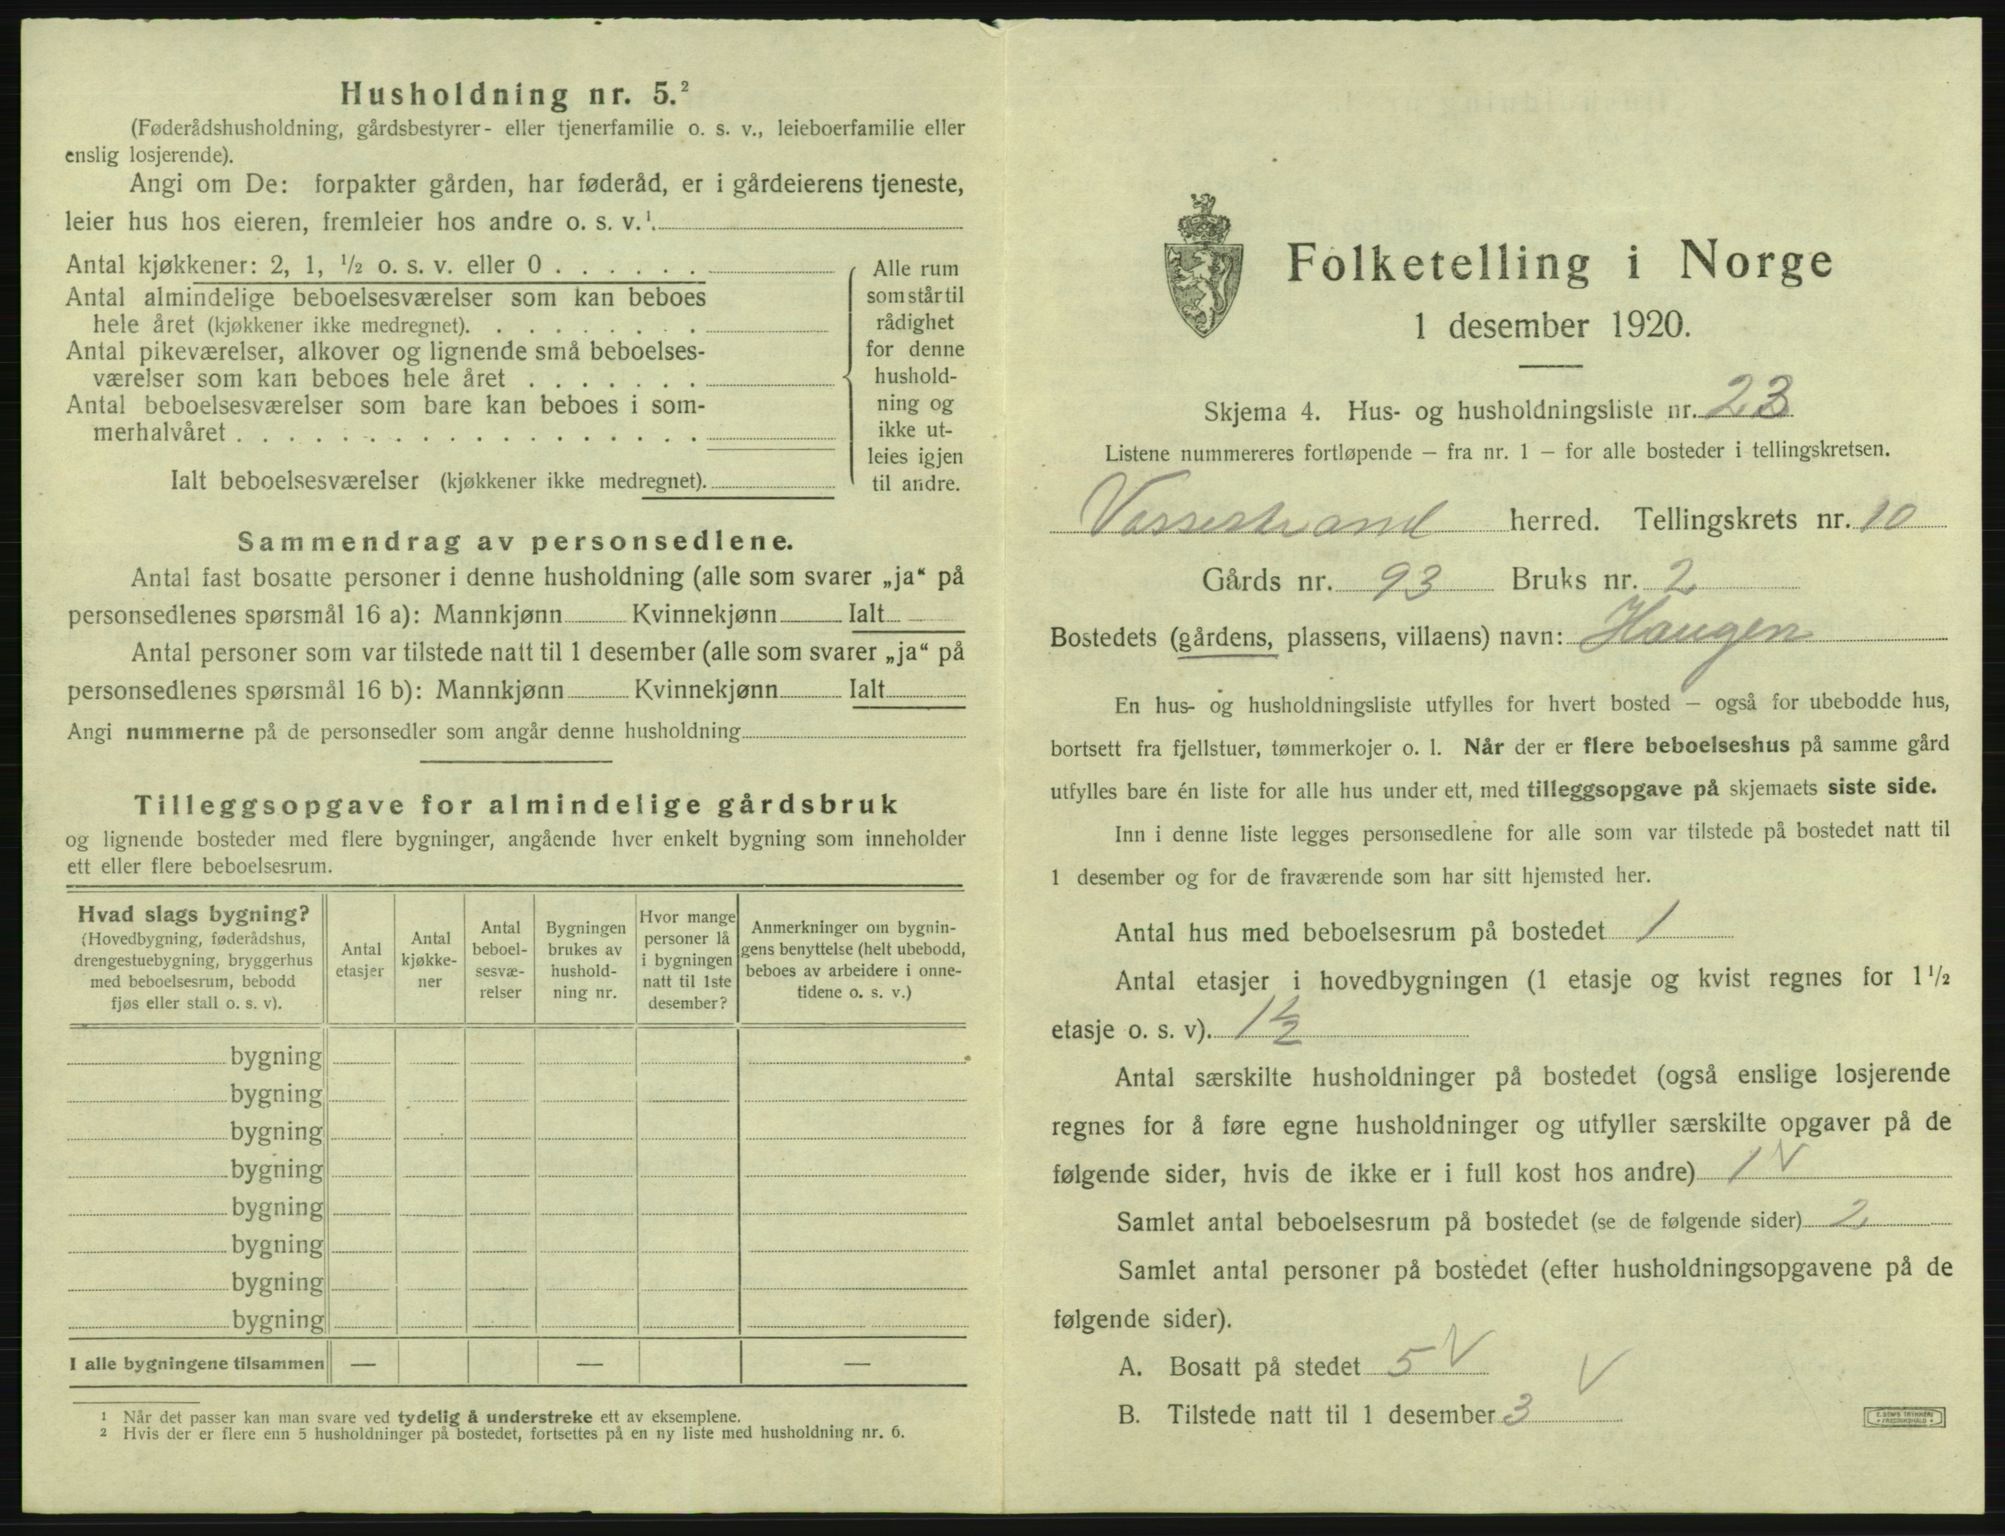 Husholdning nr. 5.²
(Føderådshusholdning, gårdsbestyrer- eller tjenerfamilie o. s. v., leieboerfamilie eller
enslig losjerende).
Angi om De: forpakter gården, har føderåd, er i gårdeierens tjeneste,
leier hus hos eieren, fremleier hos andre o. s. v.¹.
Antal kjøkkener: 2, 1, ½ o. s. v. eller 0 . . . . . .
Antal almindelige beboelsesværelser som kan beboes
hele året (kjøkkener ikke medregnet). . . . . . . . .
Antal pikeværelser, alkover og lignende små beboelses-
værelser som kan beboes hele året . . . . . . .
Antal beboelsesværelser som bare kan beboes i som-
merhalvåret . . . . . . . . . . . . . . . . . .
Ialt beboelsesværelser (kjøkkener ikke medregnet).
Alle rum
som står til
rådighet
for denne
hushold-
ning og
ikke ut-
leies igjen
til andre.
Sammendrag av personsedlene.
Antal fast bosatte personer i denne husholdning (alle som svarer „ja“ på
personsedlenes spørsmål 16 a): Mannkjønn Kvinnekjønn Ialt
Antal personer som var tilstede natt til 1 desember (alle som svarer „ja“ på
personsedlenes spørsmål 16 b): Mannkjønn Kvinnekjønn Ialt
Angi nummerne på de personsedler som angår denne husholdning
Tilleggsopgave for almindelige gårdsbruk
og lignende bosteder med flere bygninger, angående hver enkelt bygning som inneholder
ett eller flere beboelsesrum.
Hvad slags bygning?
(Hovedbygning, føderådshus,
drengestuebygning, bryggerhus
med beboelsesrum, bebodd
fjøs eller stall o. s. v).
Antal
etasjer
Antal
kjøkke-
ner
Antal
beboel-
sesvæ-
relser
Bygningen
brukes av
hushold-
ning nr.
Hvor mange
personer lå
i bygningen
natt til 1ste
desember?
Anmerkninger om bygnin-
gens benyttelse (helt ubebodd,
beboes av arbeidere i onne-
tidene o. s. v.)
bygning
bygning
bygning
bygning
bygning
bygning
bygning
bygning
I alle bygningene tilsammen — — —
¹ Når det passer kan man svare ved tydelig å understreke ett av eksemplene.
² Hvis der er flere enn 5 husholdninger på bostedet, fortsettes på en ny liste med husholdning nr. 6.
Folketelling i Norge
1 desember 1920.
Skjema 4. Hus- og husholdningsliste nr. 23
Listene nummereres fortløpende – fra nr. 1 – for alle bosteder i tellingskretsen.
Vossestrand herred. Tellingskrets nr. 10
Gårds nr. 93 Bruks nr. 2
Bostedets (gårdens, plassens, villaens) navn: Haugen
En hus- og husholdningsliste utfylles for hvert bosted – også for ubebodde hus,
bortsett fra fjellstuer, tømmerkojer o. l. Når der er flere beboelseshus på samme gård
utfylles bare én liste for alle hus under ett, med tilleggsopgave på skjemaets siste side.
Inn i denne liste legges personsedlene for alle som var tilstede på bostedet natt til
1 desember og for de fraværende som har sitt hjemsted her.
Antal hus med beboelsesrum på bostedet 1
Antal etasjer i hovedbygningen (1 etasje og kvist regnes for 1 ½
etasje o. s. v). 1½
Antal særskilte husholdninger på bostedet (også enslige losjerende
regnes for å føre egne husholdninger og utfyller særskilte opgaver på de
følgende sider, hvis de ikke er i full kost hos andre) 1 V
Samlet antal beboelsesrum på bostedet (se de følgende sider) 2
Samlet antal personer på bostedet (efter husholdningsopgavene på de
følgende sider).
A. Bosatt på stedet 5 V V
B. Tilstede natt til 1 desember 3